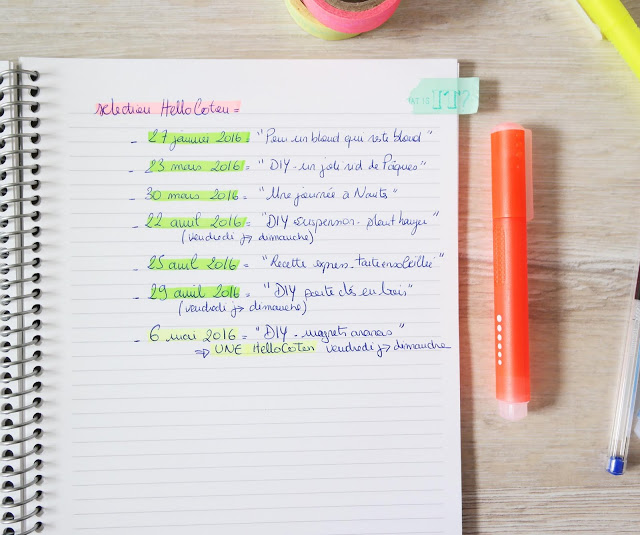 IT?
sélection HelloCoton =
- 27 janvier 2016 = "Pour un blond qui reste blond"
- 23 mars 2016 = "DIY - un joli nid de Pâques"
- 30 mars 2016 = "Une journée à Nantes"
- 22 avril 2016 = "DIY suspension - plant hanger"
(vendredi → dimanche)
- 25 avril 2016 = "Recette express - tarte ensoleillée"
- 29 avril 2016 = "DIY porte clés en bois"
(vendredi → dimanche)
- 6 mai 2016 = "DIY - magnets ananas"
⇒ UNE HelloCoton vendredi → dimanche